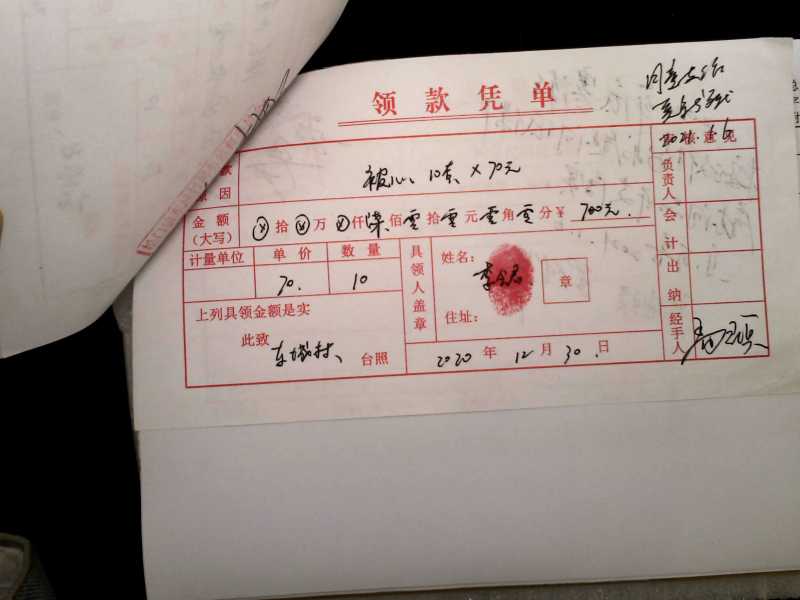 领款凭单
同意支付
原因
被心、10套 x 70元
负责人
金额
(大写)
ⓧ拾ⓧ万ⓧ仟柒佰零拾零元零角零分¥ 700元.
会计
计量单位 单价 数量
70. 10
具领人盖章
姓名:
章
住址:
出纳
上列具领金额是实
此致
东城村、台照
2020年12月30.日
经手人